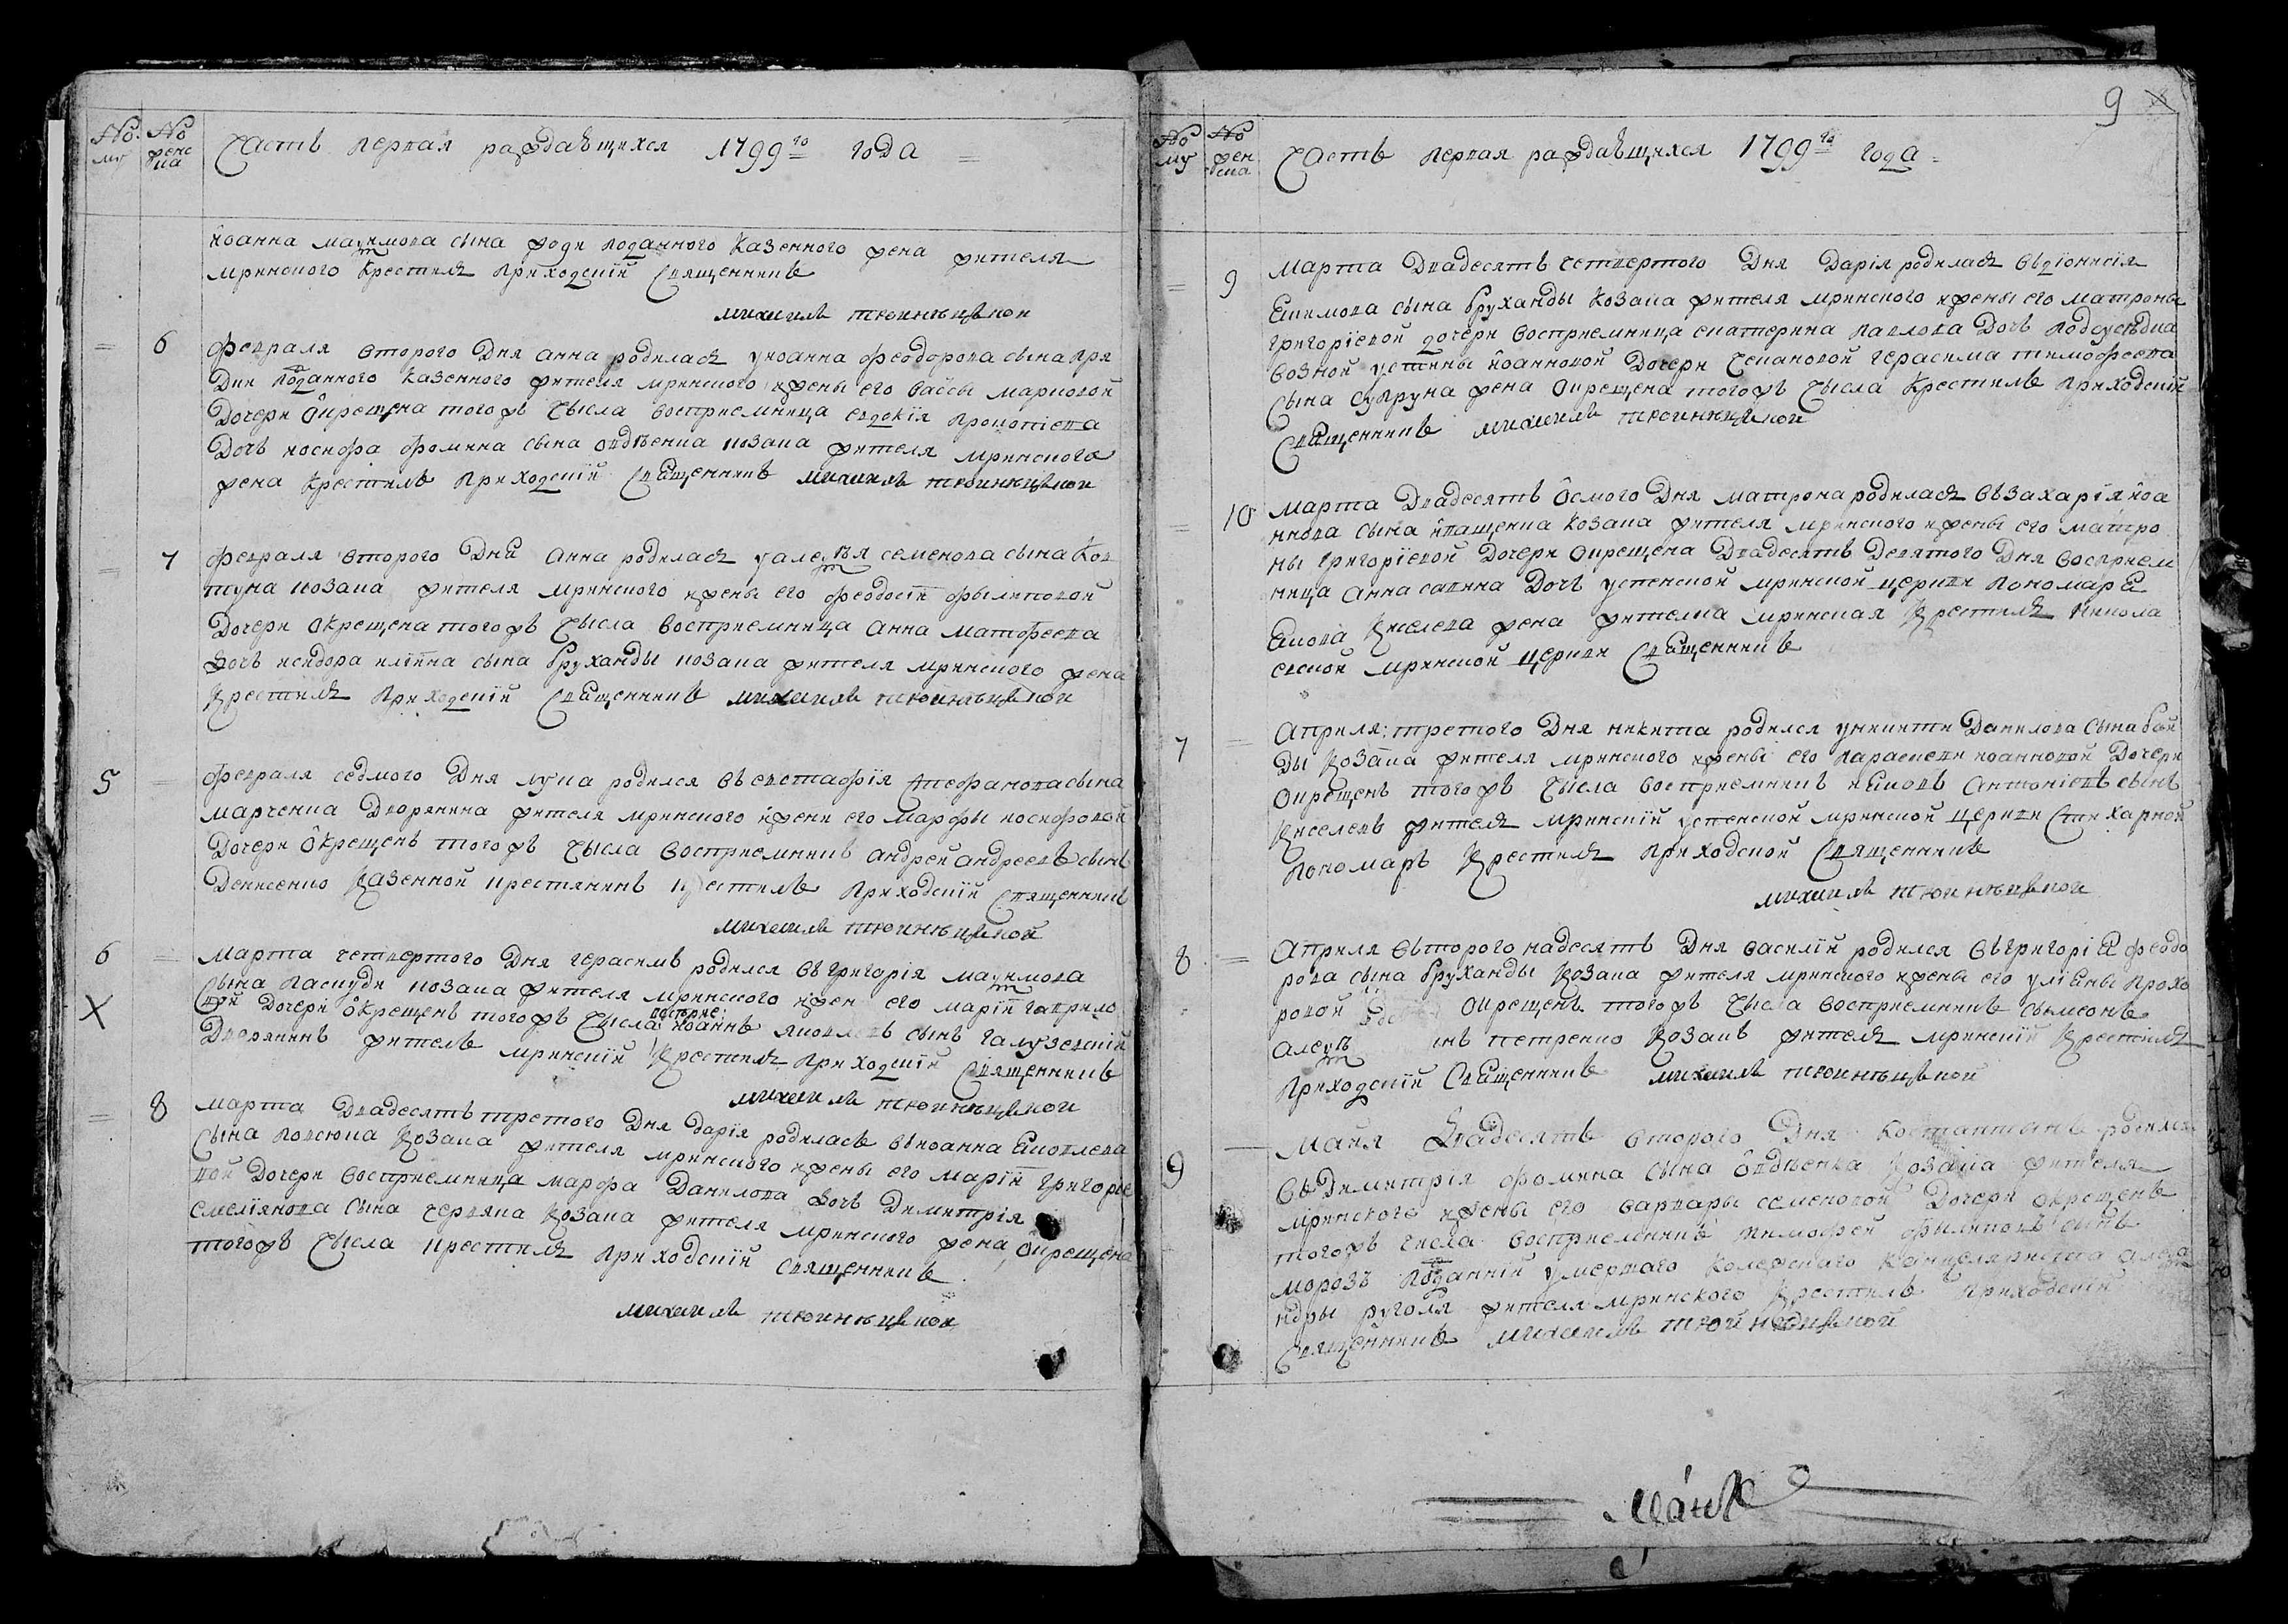 № му
№ женска
Часть первая раждающихся 1799го года =
иоанна максимова сына роди подданного казенного жена жителя
мринского крестилъ приходскій священникъ
михаилъ
= 6 февраля второго дня анна родилась у иоанна феодорова сына при
дки подданного казенного жителя мринского и жены его вассы марковой
дочери окрещена тогожъ чысла восприемница евдокія прокопіева
дочь иосифа фомина сына овдѣенка козака жителя мринского
жена крестилъ приходскій священникъ михаилъ
= 7 февраля второго дня анна родилась у алексѣя семенова сына ков
туна козака жителя мринского и жены его феодосіи филиповой
дочери окрещена тогожъ чысла восприемница анна матфеева
дочь исидора иліина сына бруханды козака жителя мринского жена
крестилъ приходскій священникъ михаилъ
5 = февраля седмого дня лука родился въ евстафія стефанова сына
марченка дворянина жителя мринского и жени его марфы иосифовой
дочери окрещенъ тогожъ чысла восприемникъ андрей андреевъ сынъ
денисенко казенной крестянинъ крестилъ приходскій священникъ
михаилъ
6 = марта четвертого дня герасимъ родился въ григорія максимова
сына паскуди козака жителя мринского и жен его маріи гаврило
X вой дочери окрещенъ тогожъ чысла восприе: иоаннъ яковлевъ сынъ галузевскій
дворянинъ житель мринскій крестилъ приходскій священникъ
михаилъ
= 8 марта двадесять третого дня дарія родилась въ иоанна яковлева
сына козака жителя мринского и жены его маріи григорье
вой дочери восприемница марфа данилова дочь димитрія
емеліянова сына червяка козака жителя мринского жена, окрещена
тогожъ чысла крестилъ приходскій священникъ
михаилъ
9
№ му
№ женска
Часть первая раждающихся 1799го года =
= 9 марта двадесять четвертого дня дарія родилась въ діонисія
екимова сына бруханды козака жителя мринского и жены его матроны
григоріевой дочери восприемница екатерина павлова дочь подсусѣдка
возной устины иоанновой дочери герасима тимофеева
сына супруна жена окрещена тогожъ чысла крестилъ приходскій
священникъ михаилъ
= 10 марта двадесять осмого дня матрона родилась въ захарія иоа
ннова сына иващенка козака жителя мринского и жены его матро
ны григоріевой дочери окрещена двадесять девятого дня восприем
ница анна савина дочь успенской мринской церкви пономаря
якова киселева жена жителка мринская крестилъ никола
евской мринской церкви священникъ
7 = апреля: третого дня никита родился у никити данилова сына бай
ды козака жителя мринского и жены его параскеви иоанновой дочери
окрещенъ тогожъ чысла восприемникъ яковъ антоніевъ сынъ
киселевъ житель мринскій успенской мринской церкви стихарной
пономарь крестилъ приходской священникъ
михаилъ
8 = апреля второго надесять дня василій родился въ григорія феодо
рова сына бруханды козака жителя мринского и жены его уліяны прохо
ровой окрещенъ тогожъ чысла восприемникъ сымеонъ
петренко козакъ житель мринскій крестилъ
приходскій священникъ михаилъ
9 — майя двадесять второго дня костантынъ родился
въ димитрія фомина сына овдѣенка козака жителя
мринского и жены его варвары семеновой дочери окрещенъ
тогожъ числа восприемникъ тимофей филиповъ сынъ
морозъ подданній умершаго колежского канцеляриста алекса
ндры жителя мринского крестилъ приходскій
священникъ михаилъ